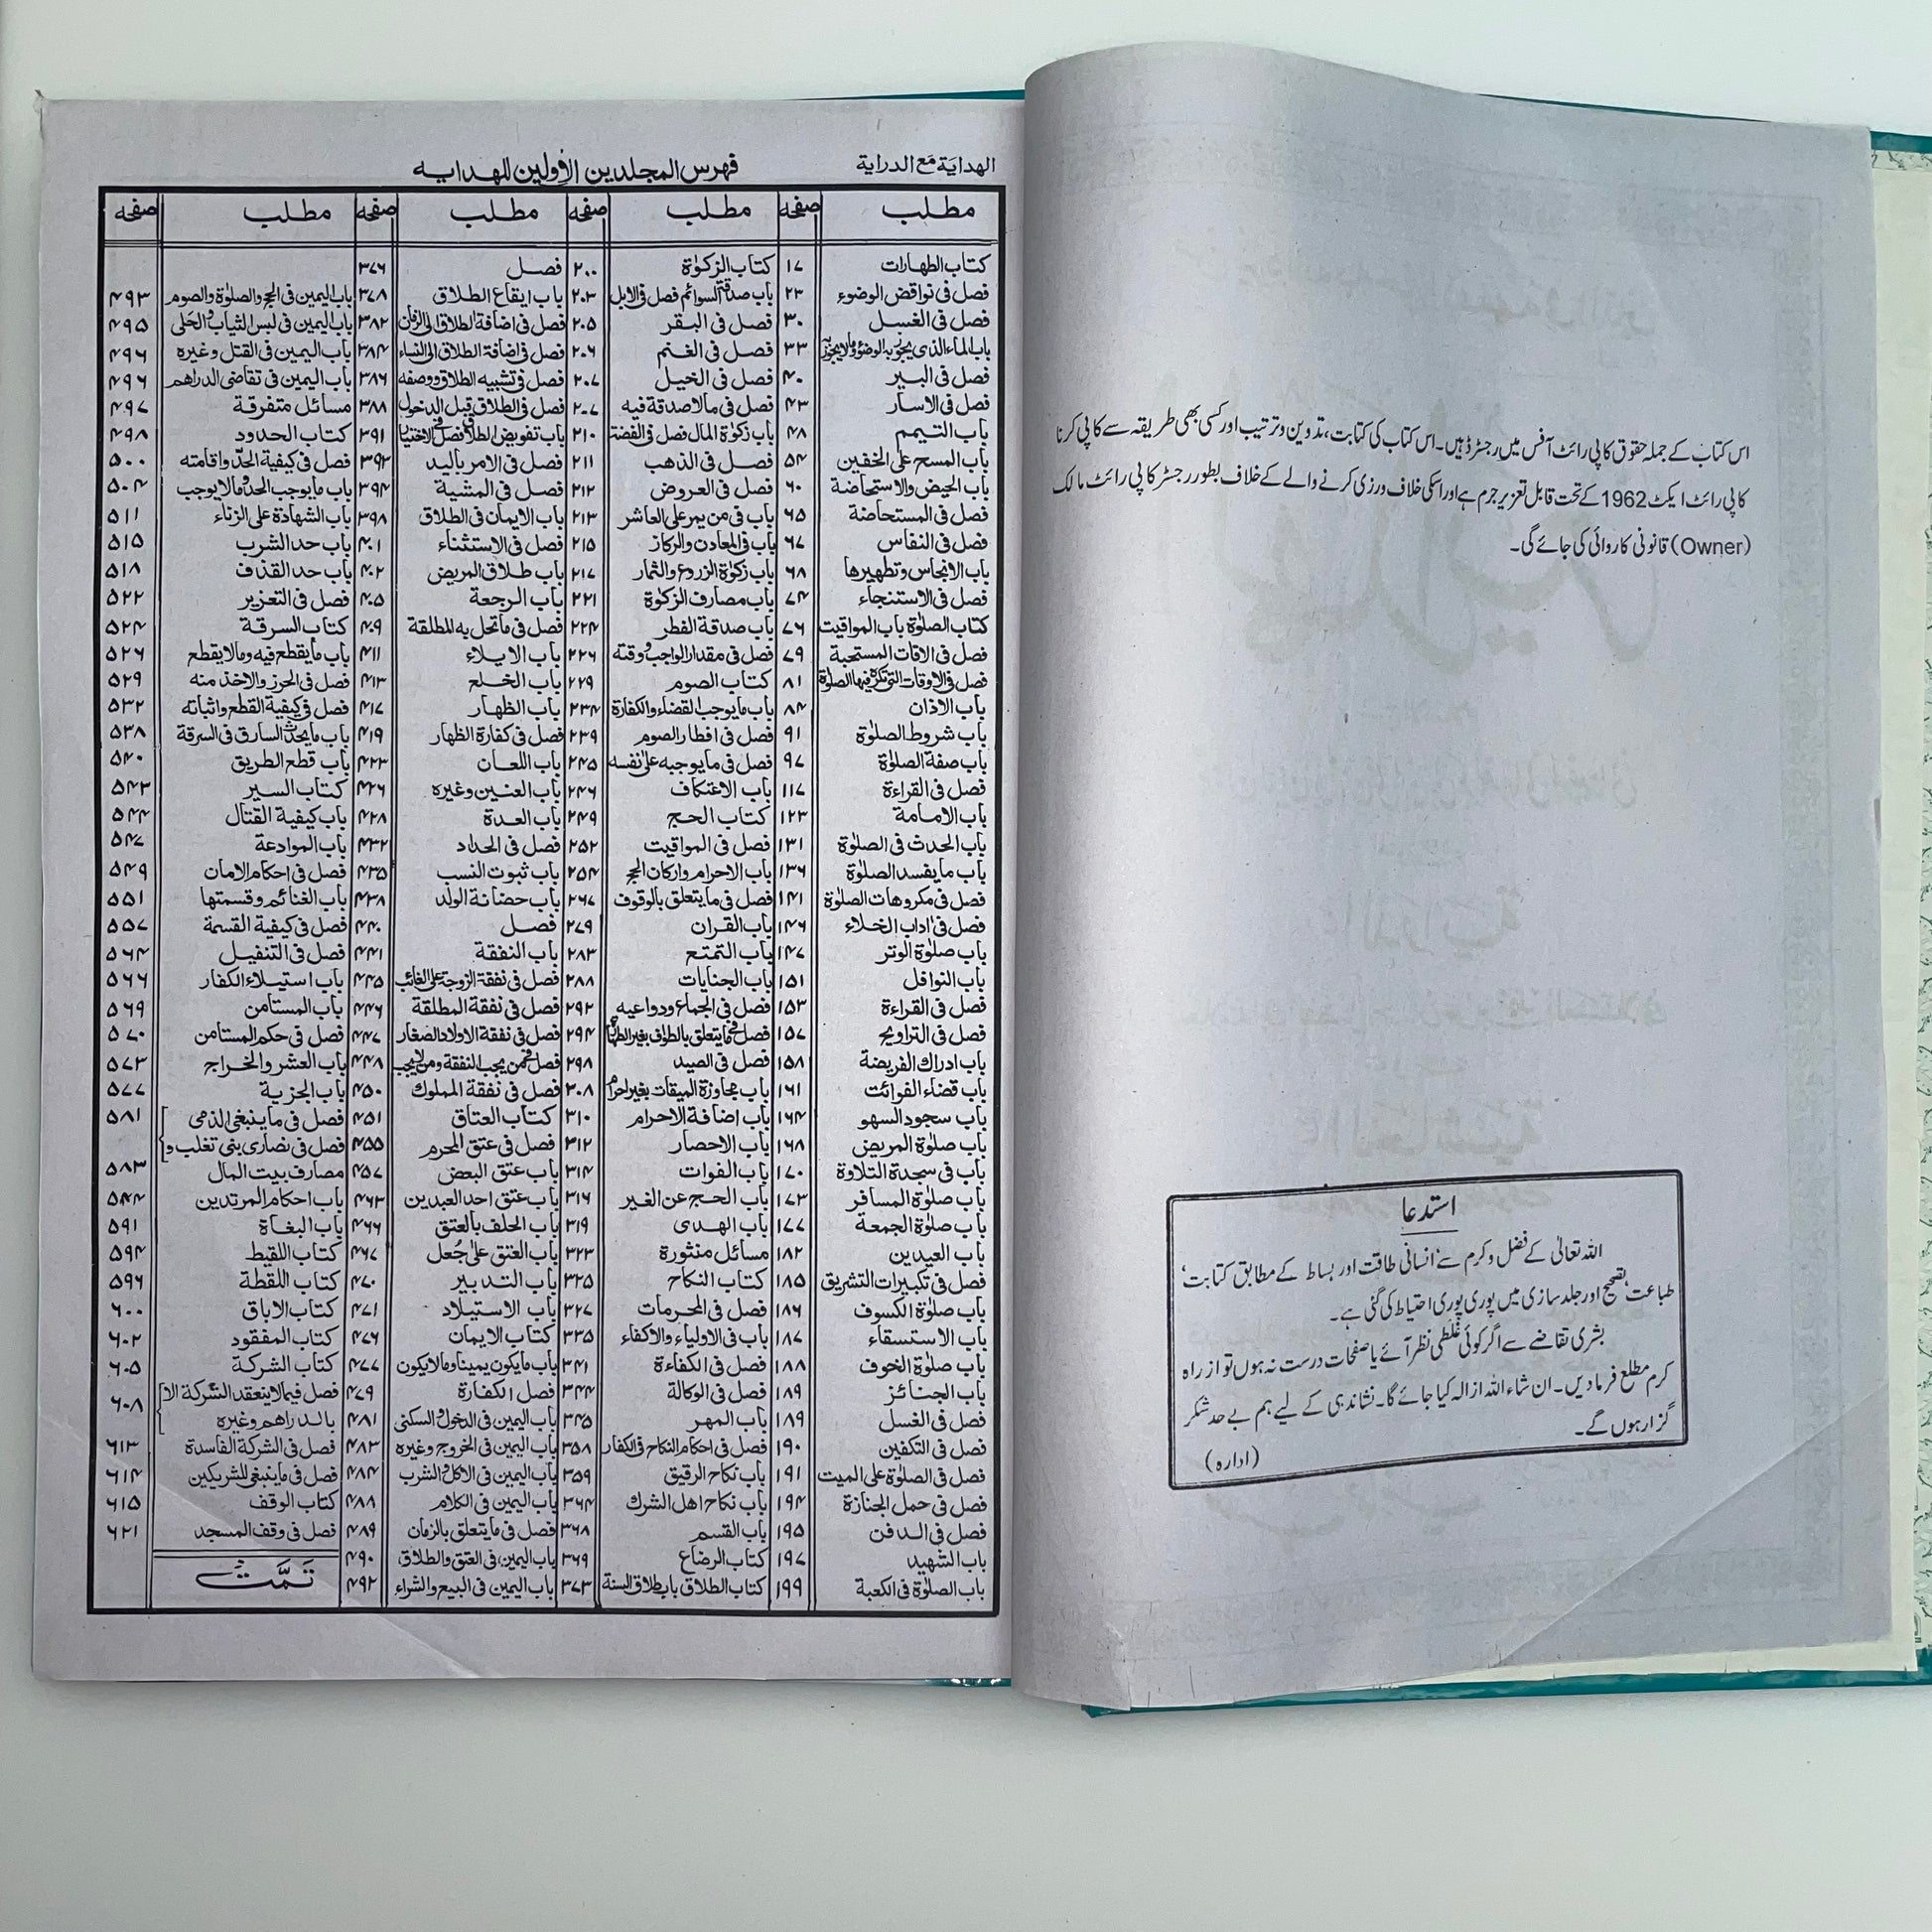 اس کتاب کے جملہ حقوق کاپی رائٹ آفس میں رجسٹرڈ ہیں۔ اس کتاب کی کتابت، تدوین و ترتیب اور کسی بھی طریقہ سے کاپی کرنا
کاپی رائٹ ایکٹ 1962 کے تحت قابل تعزیر جرم ہے اور اسکی خلاف ورزی کرنے والے کے خلاف بطور رجسٹر کاپی رائٹ مالک
(Owner) قانونی کاروائی کی جائے گی۔
استدعا
اللہ تعالیٰ کے فضل و کرم سے انسانی طاقت اور بساط کے مطابق کتابت'
طباعت' تصحیح اور جلد سازی میں پوری پوری احتیاط کی گئی ہے۔
بشری تقاضے سے اگر کوئی غلطی نظر آئے یا صفحات درست نہ ہوں تو از راہ
کرم مطلع فرما دیں۔ ان شاء اللہ ازالہ کیا جائے گا۔ نشاندہی کے لیے ہم بے حد شکر
گزار ہوں گے۔
(ادارہ)
الهداية مع الدراية
فهرس المجلدين الاولين للهدايه
مطلب صفحه مطلب صفحه مطلب صفحه مطلب صفحه
كتاب الطهارات ۱۷ كتاب الزكوٰة ۲۰۰ فصل ۳۷۶
فصل فى نواقض الوضوء ۲۳ باب صدقة السوائم فصل فى الابل ۲۰۳ باب ايقاع الطلاق ۳۷۸ باب اليمين فى الحج والصلوٰة والصوم ۴۹۳
فصل فى الغسل ۳۰ فصل فى البقر ۲۰۵ فصل فى اضافة الطلاق الى الزمان ۳۸۲ باب اليمين فى لبس الثياب والحلى ۴۹۵
باب الماء الذى يجوز به الوضوء ومالا يجوز به ۳۳ فصل فى الغنم ۲۰۶ فصل فى اضافة الطلاق الى النساء ۳۸۴ باب اليمين فى القتل وغيره ۴۹۶
فصل فى البير ۴۰ فصل فى الخيل ۲۰۷ فصل فى تشبيه الطلاق ووصفه ۳۸۶ باب اليمين فى تقاضى الدراهم ۴۹۶
فصل فى الاسار ۴۳ فصل فى مالاصدقة فيه ۲۰۷ فصل فى الطلاق قبل الدخول ۳۸۸ مسائل متفرقة ۴۹۷
باب التيمم ۴۸ باب زكوٰة المال فصل فى الفضة ۲۱۰ باب تفويض الطلاق فصل فى الاختيار ۳۹۱ كتاب الحدود ۴۹۸
باب المسح على الخفين ۵۴ فصل فى الذهب ۲۱۱ فصل فى الامر باليد ۳۹۲ فصل فى كيفية الحد واقامته ۵۰۰
باب الحيض والاستحاضة ۶۰ فصل فى العروض ۲۱۲ فصل فى المشية ۳۹۴ باب ما يوجب الحد ومالا يوجب ۵۰۴
فصل فى المستحاضة ۶۵ باب فى من يمر على العاشر ۲۱۳ باب الايمان فى الطلاق ۳۹۸ باب الشهادة على الزناء ۵۱۱
فصل فى النفاس ۶۷ باب فى المعادن والركاز ۲۱۵ فصل فى الاستثناء ۴۰۱ باب حد الشرب ۵۱۵
باب الانجاس وتطهيرها ۶۸ باب زكوٰة الزروع والثمار ۲۱۷ باب طلاق المريض ۴۰۲ باب حد القذف ۵۱۸
فصل فى الاستنجاء ۷۴ باب مصارف الزكوٰة ۲۲۱ باب الرجعة ۴۰۵ فصل فى التعزير ۵۲۲
كتاب الصلوٰة باب المواقيت ۷۶ باب صدقة الفطر ۲۲۴ فصل فى ما تحل به المطلقة ۴۰۹ كتاب السرقة ۵۲۴
فصل فى الاقات المستحبة ۷۹ فصل فى مقدار الواجب ووقته ۲۲۶ باب الايلاء ۴۱۱ باب ما يقطع فيه ومالا يقطع ۵۲۶
فصل فى الاوقات التى تكره فيها الصلوٰة ۸۱ كتاب الصوم ۲۲۹ باب الخلع ۴۱۳ فصل فى الحرز والاخذ منه ۵۲۹
باب الاذان ۸۴ باب ما يوجب القضاء والكفارة ۲۳۴ باب الظهار ۴۱۷ فصل فى كيفية القطع واثباته ۵۳۲
باب شروط الصلوٰة ۹۱ فصل فى افطار الصوم ۲۳۹ فصل فى كفارة الظهار ۴۱۹ باب ما يحدث السارق فى السرقة ۵۳۸
باب صفة الصلوٰة ۹۷ فصل فى ما يوجبه على نفسه ۲۴۵ باب اللعان ۴۲۳ باب قطع الطريق ۵۴۰
فصل فى القراءة ۱۱۷ باب الاعتكاف ۲۴۶ باب العنين وغيره ۴۲۶ كتاب السير ۵۴۳
باب الامامة ۱۲۳ كتاب الحج ۲۴۹ باب العدة ۴۲۸ باب كيفية القتال ۵۴۴
باب الحدث فى الصلوٰة ۱۳۱ فصل فى المواقيت ۲۵۲ فصل فى الحداد ۴۳۲ باب الموادعة ۵۴۷
باب ما يفسد الصلوٰة ۱۳۶ باب الاحرام واركان الحج ۲۵۴ باب ثبوت النسب ۴۳۵ فصل فى احكام الامان ۵۴۹
فصل فى مكروهات الصلوٰة ۱۴۱ فصل فى ما يتعلق بالوقوف ۲۶۷ باب حضانة الولد ۴۳۸ باب الغنائم وقسمتها ۵۵۱
فصل فى اداب الخلاء ۱۴۶ باب القران ۲۷۹ فصل ۴۴۰ فصل فى كيفية القسمة ۵۵۷
باب صلوٰة الوتر ۱۴۷ باب التمتع ۲۸۳ باب النفقة ۴۴۱ فصل فى التنفيل ۵۶۴
باب النوافل ۱۵۱ باب الجنايات ۲۸۸ فصل فى نفقة الزوجة على الغائب ۴۴۵ باب استيلاء الكفار ۵۶۶
فصل فى القراءة ۱۵۳ فصل فى الجماع ودواعيه ۲۹۲ فصل فى نفقة المطلقة ۴۴۶ باب المستامن ۵۶۹
فصل فى التراويح ۱۵۷ فصل فى ما يتعلق بالطواف بغير الطهارة ۲۹۴ فصل فى نفقة الاولاد الصغار ۴۴۷ فصل فى حكم المستامن ۵۷۰
باب ادراك الفريضة ۱۵۸ فصل فى الصيد ۲۹۸ فصل فى من يجب النفقة ومن لا يجب ۴۴۸ باب العشر والخراج ۵۷۳
باب قضاء الفوائت ۱۶۱ باب مجاوزة الميقات بغير احرام ۳۰۸ فصل فى نفقة المملوك ۴۵۰ باب الجزية ۵۷۷
باب سجود السهو ۱۶۴ باب اضافة الاحرام ۳۱۰ كتاب العتاق ۴۵۱ فصل فى ما ينبغى الذمى ۵۸۱
باب صلوٰة المريض ۱۶۸ باب الاحصار ۳۱۲ فصل فى عتق المحرم ۴۵۵ فصل فى نصارى بنى تغلب و
باب فى سجدة التلاوة ۱۷۰ باب الفوات ۳۱۴ باب عتق البعض ۴۵۷ مصارف بيت المال ۵۸۳
باب صلوٰة المسافر ۱۷۳ باب الحج عن الغير ۳۱۶ باب عتق احد العبدين ۴۶۳ باب احكام المرتدين ۵۸۴
باب صلوٰة الجمعة ۱۷۷ باب الهدى ۳۱۹ باب الحلف بالعتق ۴۶۶ باب البغاة ۵۹۱
باب العيدين ۱۸۲ مسائل منثورة ۳۲۳ باب العتق على جُعل ۴۶۷ كتاب اللقيط ۵۹۴
فصل فى تكبيرات التشريق ۱۸۵ كتاب النكاح ۳۲۵ باب التدبير ۴۷۰ كتاب اللقطة ۵۹۶
باب صلوٰة الكسوف ۱۸۶ فصل فى المحرمات ۳۲۷ باب الاستيلاد ۴۷۱ كتاب الاباق ۶۰۰
باب الاستسقاء ۱۸۷ باب فى الاولياء والاكفاء ۳۳۵ كتاب الايمان ۴۷۶ كتاب المفقود ۶۰۲
باب صلوٰة الخوف ۱۸۸ فصل فى الكفاءة ۳۴۱ باب ما يكون يمينا ومالا يكون ۴۷۷ كتاب الشركة ۶۰۵
باب الجنائز ۱۸۹ فصل فى الوكالة ۳۴۴ فصل الكفارة ۴۷۹ فصل فيما لا ينعقد الشركة الا ۶۰۸
فصل فى الغسل ۱۸۹ باب المهر ۳۴۵ باب اليمين فى الدخول والسكنى ۴۸۱ بالدراهم وغيره
فصل فى التكفين ۱۹۰ فصل فى احكام النكاح فى الكفار ۳۵۸ باب اليمين فى الخروج وغيره ۴۸۳ فصل فى الشركة الفاسدة ۶۱۳
فصل فى الصلوٰة على الميت ۱۹۱ باب نكاح الرقيق ۳۵۹ باب اليمين فى الاكل والشرب ۴۸۴ فصل فى ما ينبغى للشريكين ۶۱۴
فصل فى حمل الجنازة ۱۹۴ باب نكاح اهل الشرك ۳۶۴ باب اليمين فى الكلام ۴۸۸ كتاب الوقف ۶۱۵
فصل فى الدفن ۱۹۵ باب القسم ۳۶۸ فصل فى ما يتعلق بالزمان ۴۸۹ فصل فى وقف المسجد ۶۲۱
باب الشهيد ۱۹۷ كتاب الرضاع ۳۶۹ باب اليمين فى العتق والطلاق ۴۹۰ تَمَّت
باب الصلوٰة فى الكعبة ۱۹۹ كتاب الطلاق باب طلاق السنة ۳۷۳ باب اليمين فى البيع والشراء ۴۹۲